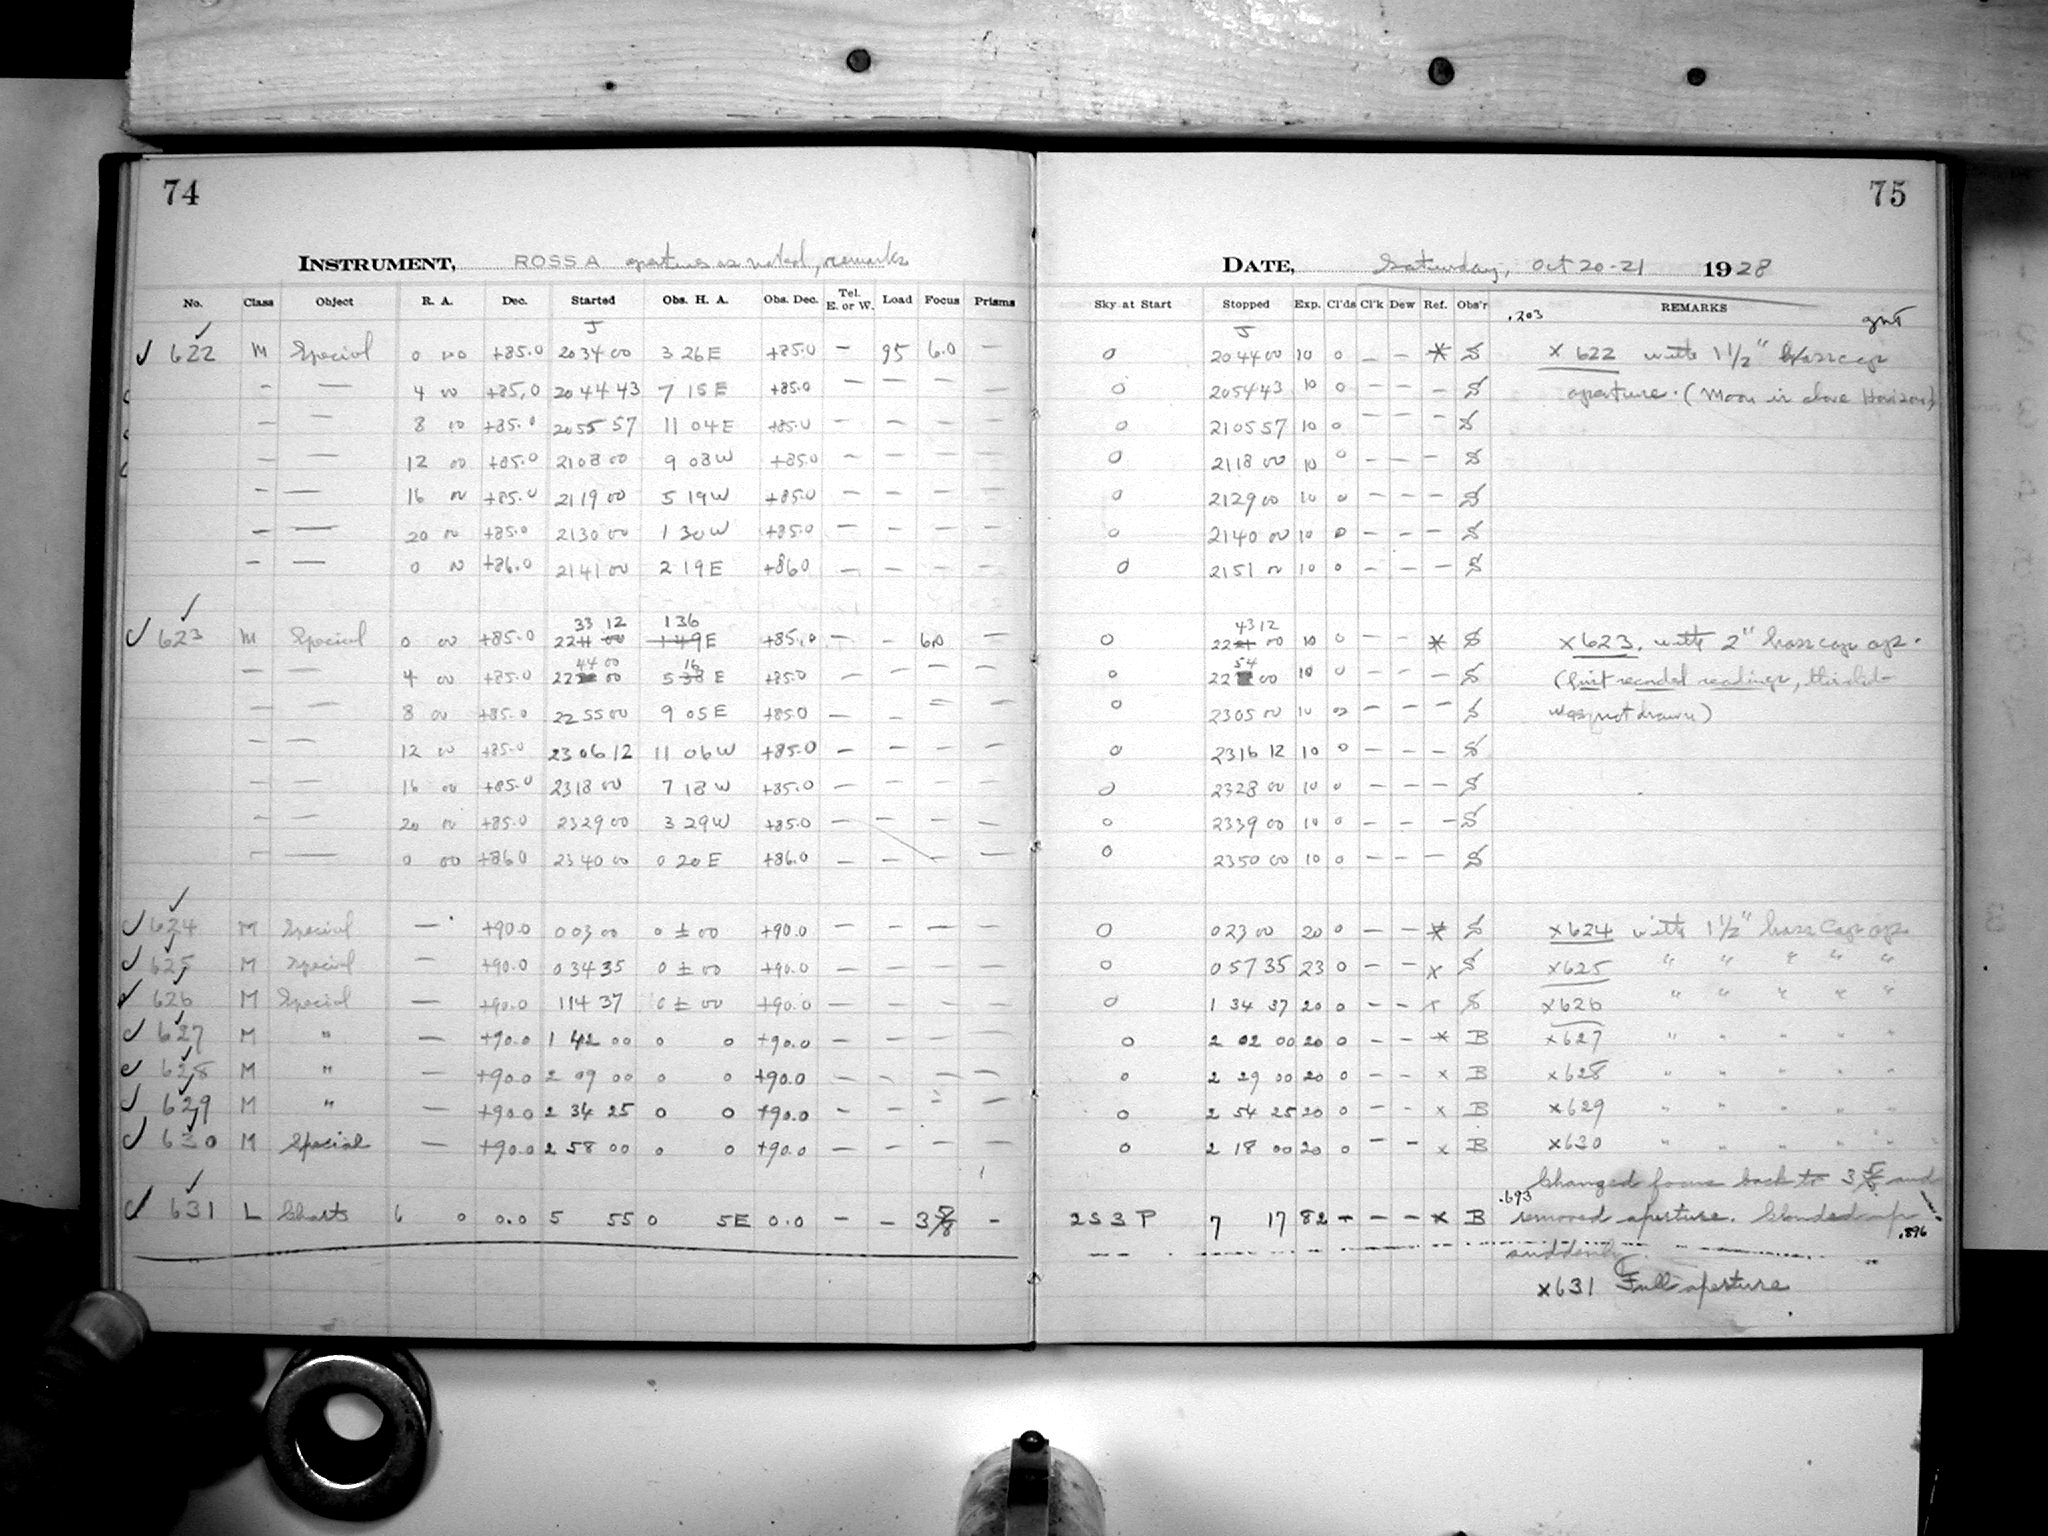 74
INSTRUMENT, ROSS A apertures as noted, remarks
No. Class Object R. A. Dec. Started Obs. H. A. Obs. Dec. Tel. E. or W. Load Focus Prisms
J
✓ 622 M Special 0 00 +85.0 20 34 00 3 26 E +85.0 — 95 6.0 —
— — 4 00 +85.0 20 44 43 7 15 E +85.0 — — — —
— — 8 00 +85.0 20 55 57 11 04 E +85.0 — — — —
— — 12 00 +85.0 21 08 00 9 08 W +85.0 — — — —
— — 16 00 +85.0 21 19 00 5 19 W +85.0 — — — —
— — 20 00 +85.0 21 30 00 1 30 W +85.0 — — — —
— — 0 00 +86.0 21 41 00 2 19 E +86.0 — — — —
33 12 136
✓ 623 M Special 0 00 +85.0 22 11 00 1 49 E +85.0 — — 6.0 —
44 00 16
— — 4 00 +85.0 22 00 5 38 E +85.0 — — — —
— — 8 00 +85.0 22 55 00 9 05 E +85.0 — — — —
— — 12 00 +85.0 23 06 12 11 06 W +85.0 — — — —
— — 16 00 +85.0 23 18 00 7 18 W +85.0 — — — —
— — 20 00 +85.0 23 29 00 3 29 W +85.0 — — — —
— — 0 00 +86.0 23 40 00 0 20 E +86.0 — — — —
✓ 624 M Special — +90.0 0 03 00 0 ± 00 +90.0 — — — —
✓ 625 M Special — +90.0 0 34 35 0 ± 00 +90.0 — — — —
✓ 626 M Special — +90.0 1 14 37 0 ± 00 +90.0 — — — —
✓ 627 M " — +90.0 1 42 00 0 0 +90.0 — — — —
✓ 628 M " — +90.0 2 09 00 0 0 +90.0 — — — —
✓ 629 M " — +90.0 2 34 25 0 0 +90.0 — — — —
✓ 630 M Special — +90.0 2 58 00 0 0 +90.0 — — — —
✓ 631 L Charts 6 0 0.0 5 55 0 5E 0.0 — — 3 5/8 —
75
DATE, Saturday, Oct 20-21 1928
Sky at Start Stopped Exp. Cl'ds Cl'k Dew Ref. Obs'r REMARKS
.203
J
0 20 44 00 10 0 — — * S X 622 with 1 1/2" brass cap
0 20 54 43 10 0 — — — S aperture. (Moon is above Horizon)
0 21 05 57 10 0 — — — S
0 21 18 00 10 0 — — — S
0 21 29 00 10 0 — — — S
0 21 40 00 10 0 — — — S
0 21 51 00 10 0 — — — S
43 12
0 22 21 00 10 0 — — * S X 623. with 2" brass cap ap.
54
0 22 00 10 0 — — — S (first recorded readings, the slide
0 23 05 00 10 0 — — — S was not drawn)
0 23 16 12 10 0 — — — S
0 23 28 00 10 0 — — — S
0 23 39 00 10 0 — — — S
0 23 50 00 10 0 — — — S
0 0 23 00 20 0 — — * S X624 with 1 1/2" brass cap ap
0 0 57 35 23 0 — — x S X625 " " " " "
0 1 34 37 20 0 — — x S X626 " " " " "
0 2 02 00 20 0 — — * B X627 " " " " "
0 2 29 00 20 0 — — x B X628 " " " " "
0 2 54 25 20 0 — — x B X629 " " " " "
0 2 18 00 20 0 — — x B X630 " " " " "
Changed focus back to 3 5/8 and
.693
2 S 3 P 7 17 82 + — — x B removed aperture. Clouded up
.896
suddenly.
X631 Full aperture